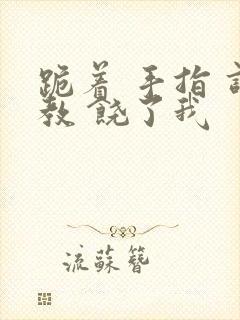 跪着 手指 调
教 饶了我
流蘇簪